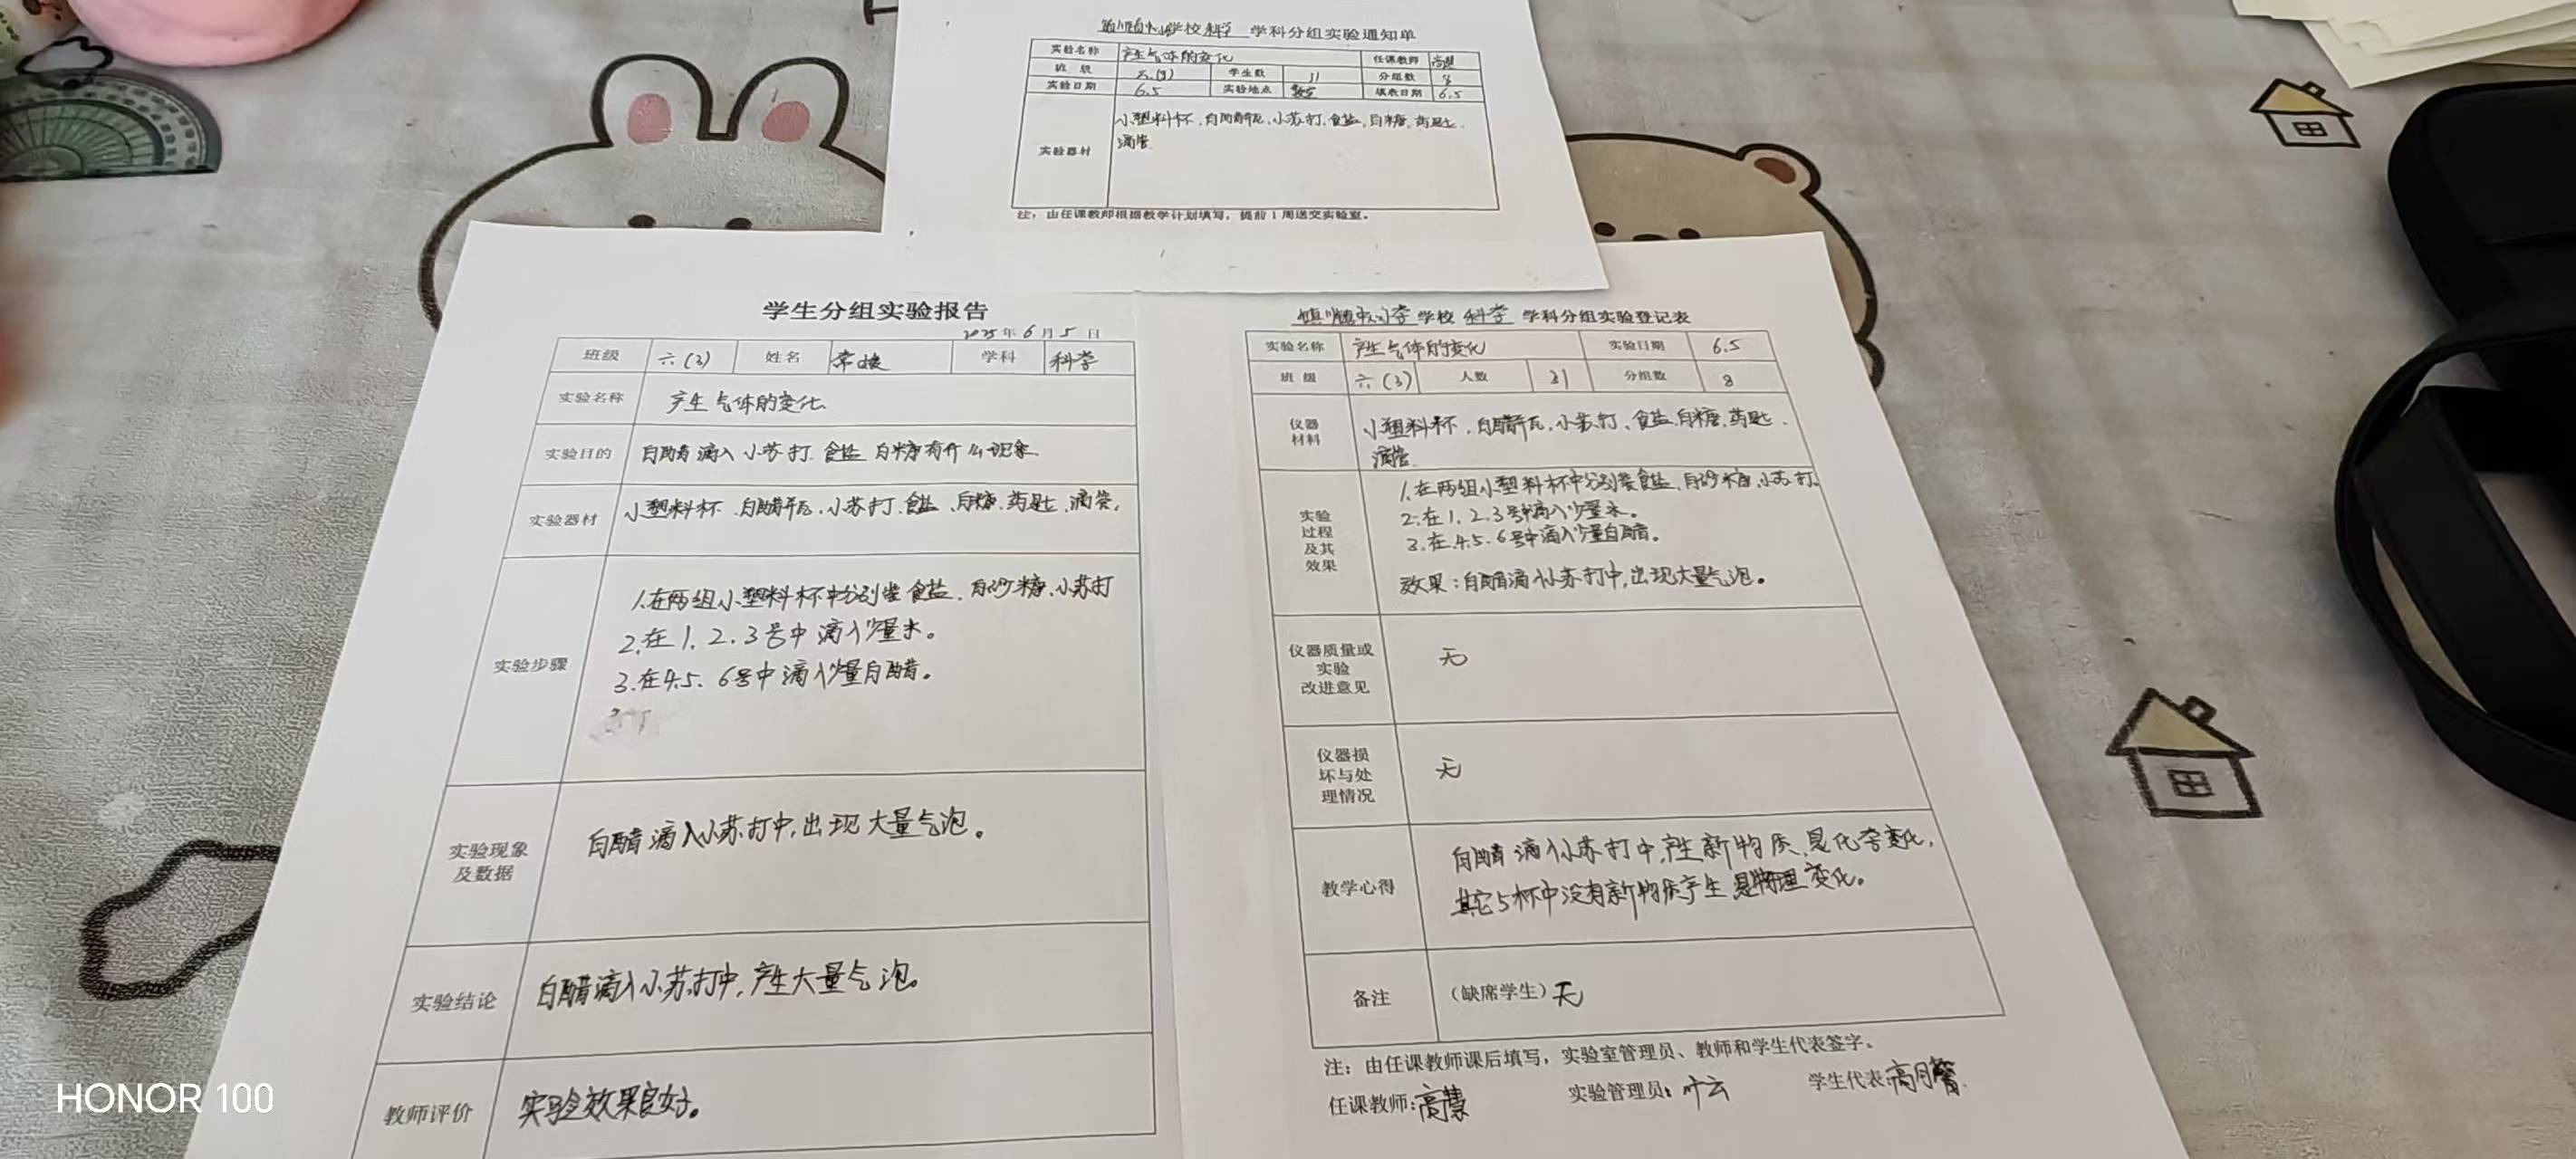 学校科学 学科分组实验通知单
实验名称 产生气体的变化 任课教师 高慧
班 级 六(3) 学生数 31 分组数 8
实验日期 6.5 实验地点 教室 填表日期 6.5
小塑料杯、白醋瓶、小苏打、食盐、白糖、药匙、
实验器材 滴管
注：由任课教师根据教学计划填写，提前1周送交实验室。
学生分组实验报告
2025年6月5日
班级 六(3) 姓名 学科 科学
实验名称 产生气体的变化
实验目的 白醋滴入小苏打 食盐 白糖有什么现象
实验器材 小塑料杯、白醋瓶、小苏打、食盐、白糖、药匙、滴管,
1.在两组小塑料杯中分别装食盐、白砂糖、小苏打
2.在1.2.3号中滴入少量水。
实验步骤 3.在4.5.6号中滴入少量白醋。
实验现象及数据 白醋滴入小苏打中,出现大量气泡。
实验结论 白醋滴入小苏打中,产生大量气泡。
教师评价 实验效果良好。
小学 学校 科学 学科分组实验登记表
实验名称 产生气体的变化 实验日期 6.5
班 级 六(3) 人数 31 分组数 8
仪器材料 小塑料杯、白醋瓶、小苏打、食盐、白糖、药匙、
滴管
1.在两组小塑料杯中分别装食盐、白砂糖、小苏打.
2.在1.2.3号中滴入少量水。
3.在4.5.6号中滴入少量白醋。
实验过程及其效果 效果：白醋滴入小苏打中,出现大量气泡。
仪器质量或实验改进意见 无
仪器损坏与处理情况 无
教学心得 白醋滴入小苏打中,产生新物质,是化学变化,
其它5杯中没有新物质产生是物理变化。
备注 （缺席学生）无
注：由任课教师课后填写，实验室管理员、教师和学生代表签字。
任课教师:高慧 实验管理员:叶云 学生代表:高月
HONOR 100